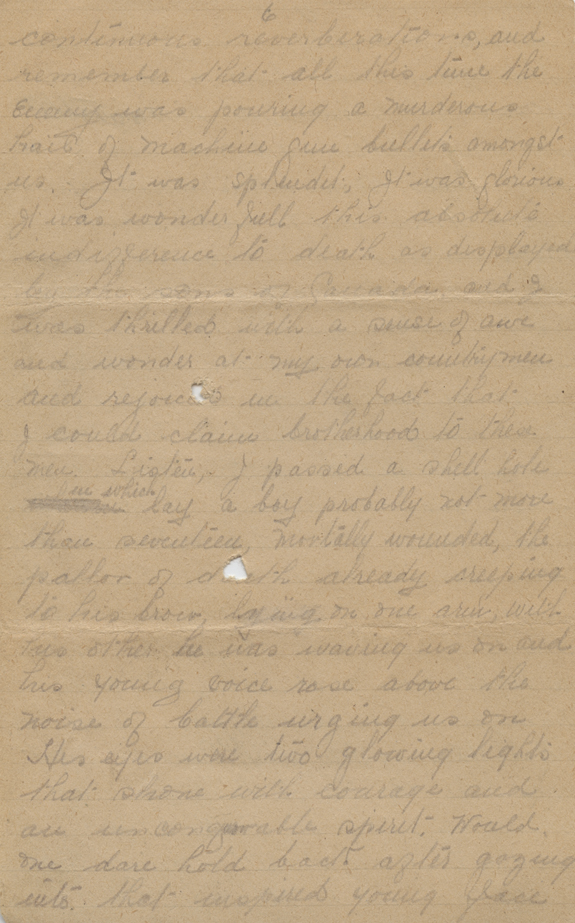 6
continuous reverberations, and
remember that all this time the
enemy was pouring a murderous
hail of machine gun bullets amongst
us. It was splendet; It was glorious
It was wonderfull this absolute
indifference to death as displayed
by the sons of Canada, and I
was thrilled with a sense of awe
and wonder at my own countrymen
and rejoiced in the fact that
I could claim brotherhood to these
men. Listen, I passed a shell hole
in which lay a boy probably not more
than seventeen, mortally wounded, the
pallor of death already creeping
to his brow, lying on one arm, with
his other he was waving us on and
his young voice rose above the
noise of battle urging us on
His eyes were two glowing lights
that shone with courage and
an unconquerable spirit. Would
one dare hold back after gazing
into that inspired young face